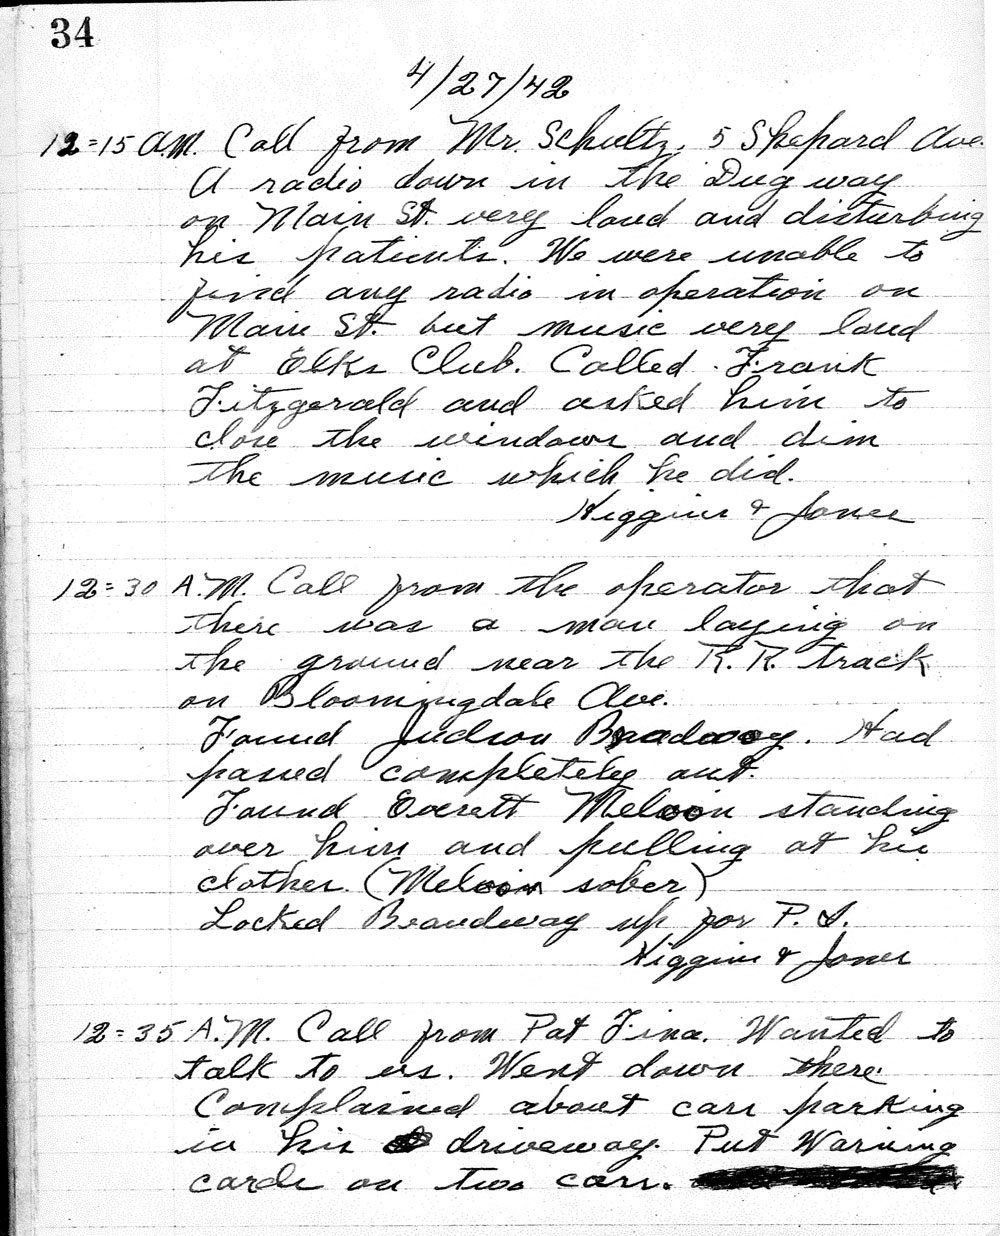 34
4/27/42
12=15 A.M. Call from Mr. Schultz, 5 Shepard Ave.
A radio down in the Dugway
on Main St. very loud and disturbing
his patients. We were unable to
find any radio in operation on
Main St. but music very loud
at Elks Club. Called Frank
Fitzgerald and asked him to
close the windows and dim
the music which he did.
Higgins & Jones
12=30 A.M. Call from the operator that
there was a man laying on
the ground near the R.R. track
on Bloomingdale Ave.
Found Judson Broadway. Had
passed completely out.
Found Everett Melvin standing
over him and pulling at his
clothes. (Melvin sober)
Locked Broadway up for P.I.
Higgins & Jones
12=35 A.M. Call from Pat Fina. Wanted to
talk to us. Went down there.
Complained about cars parking
in his driveway. Put Warning
cards on two cars.